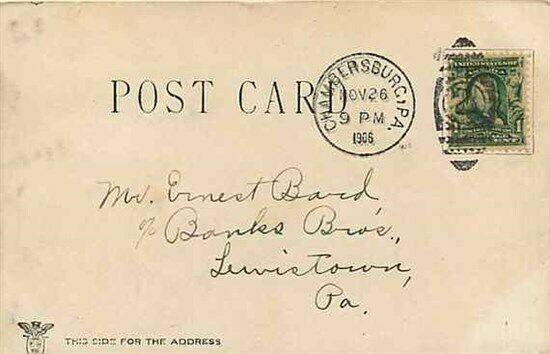 POST CARD
CHAMBERSBURG, PA.
NOV 26
9 PM
1906
Mr. Ernest Bard
c/o Banks Bros.,
Lewistown,
Pa.
THIS SIDE FOR THE ADDRESS